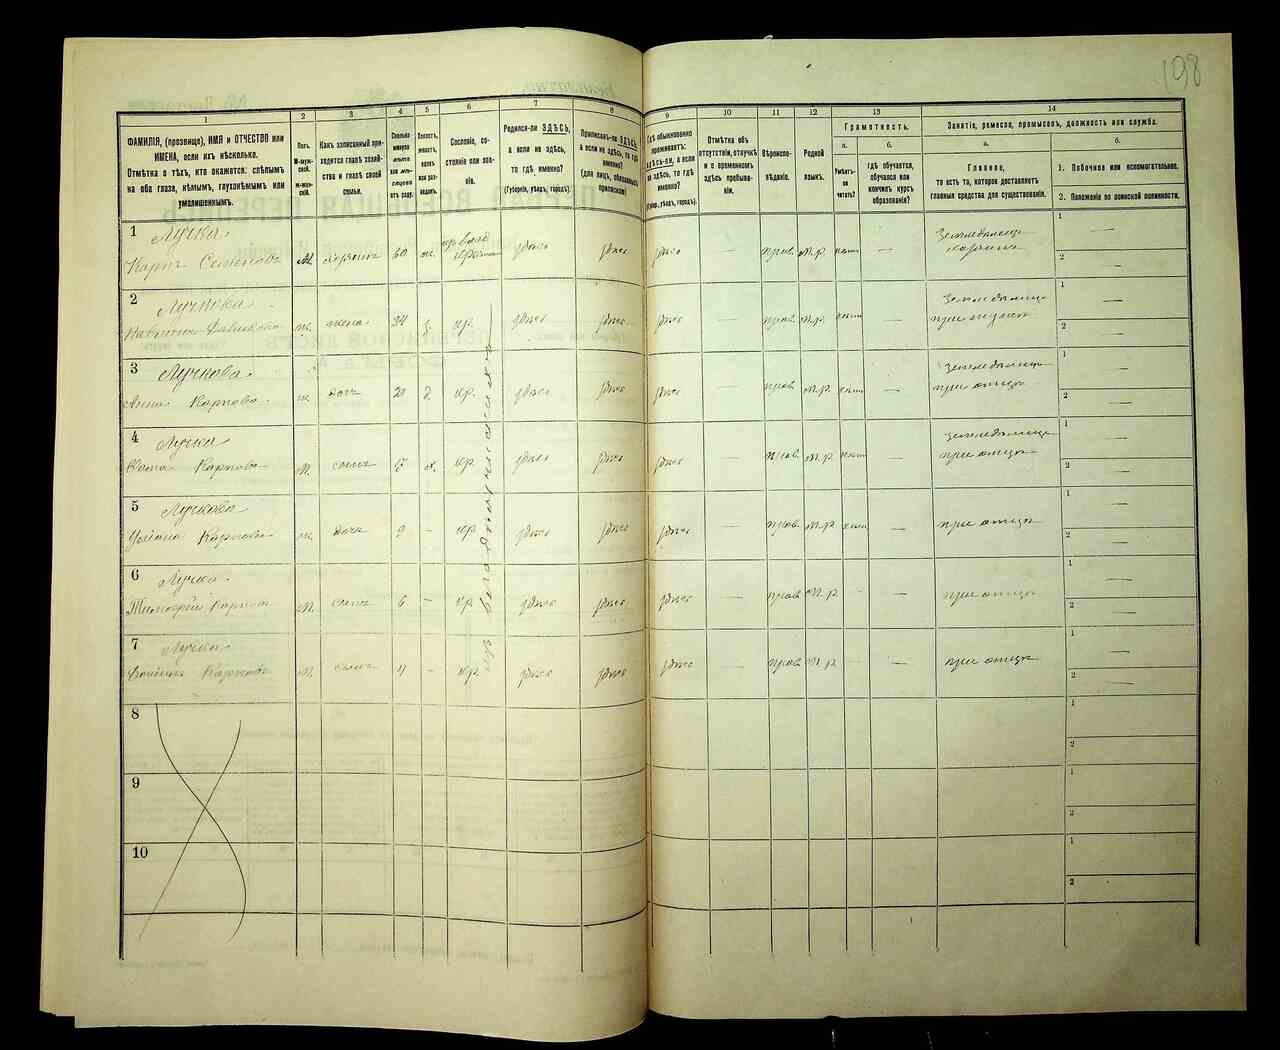 198
1
2
3
4
5
6
7
8
9
10
11
12
13
14
ФАМИЛІЯ, (прозвище), ИМЯ и ОТЧЕСТВО или
ИМЕНА, если ихъ нѣсколько.
Отмѣтка о тѣхъ, кто окажется: слѣпымъ
на оба глаза, нѣмымъ, глухонѣмымъ или
умалишеннымъ.
Полъ.
М-муж-
ской.
Ж-жен-
скій.
Какъ записанный при-
ходится главѣ хозяй-
ства и главѣ своей
семьи.
Сколько
минуло
лѣтъ
или мѣ-
сяцевъ
отъ роду.
Холостъ,
женатъ,
вдовъ
или раз-
веденъ.
Сословіе, со-
стояніе или зва-
ніе.
Родился-ли ЗДѢСЬ,
а если не здѣсь,
то гдѣ именно?
(Губернія, уѣздъ, городъ).
Приписанъ-ли ЗДѢСЬ,
а если не здѣсь, то гдѣ
именно?
(для лицъ, обязанныхъ
припискою)
Гдѣ обыкновенно
проживаетъ:
здѣсь-ли, а если
не здѣсь, то гдѣ
именно?
(Губер., уѣздъ, городъ).
Отмѣтка объ
отсутствіи, отлучкѣ
и о временномъ
здѣсь пребыва-
ніи.
Вѣроиспо-
вѣданіе.
Родной
языкъ.
Грамотность.
а.
б.
Умѣетъ-
ли
читать?
Гдѣ обучается,
обучался или
кончилъ курсъ
образованія?
Занятіе, ремесло, промыселъ, должность или служба.
а.
б.
Главное,
то есть то, которое доставляетъ
главныя средства для существованія.
1. Побочное или вспомогательное.
2. Положеніе по воинской повинности.
1 Лучка
Карпъ Семеновъ М. хозяинъ 60 ж. здѣсь здѣсь здѣсь — прав. М.р. нѣтъ — Земледѣлецъ хозяинъ 1 — 2 —
2
ж. жена 34 з. кр. здѣсь здѣсь здѣсь — прав. М.р. нѣтъ — 1 — 2 —
3 Лучкова
Анна Карпова ж. дочь 20 д. кр. здѣсь здѣсь здѣсь — прав. М.р. нѣтъ — при отцѣ 1 — 2 —
4 Лучка
Карповъ М. сынъ 17 х. кр. здѣсь здѣсь здѣсь — прав. М.р. нѣтъ — при отцѣ 1 — 2 —
5 Лучкова
Уліана Карпова ж. дочь 9 — кр. здѣсь здѣсь здѣсь — прав. М.р. нѣтъ — при отцѣ 1 — 2 —
6 Лучка
Тимофей Карповъ М. сынъ 6 — кр. здѣсь здѣсь здѣсь — прав. М.р. — — при отцѣ 1 — 2 —
7 Лучка
Карповъ М. сынъ 4 — кр. здѣсь здѣсь здѣсь — прав. М.р. — — при отцѣ 1 — 2 —
8 1 2
9 1 2
10 1 2